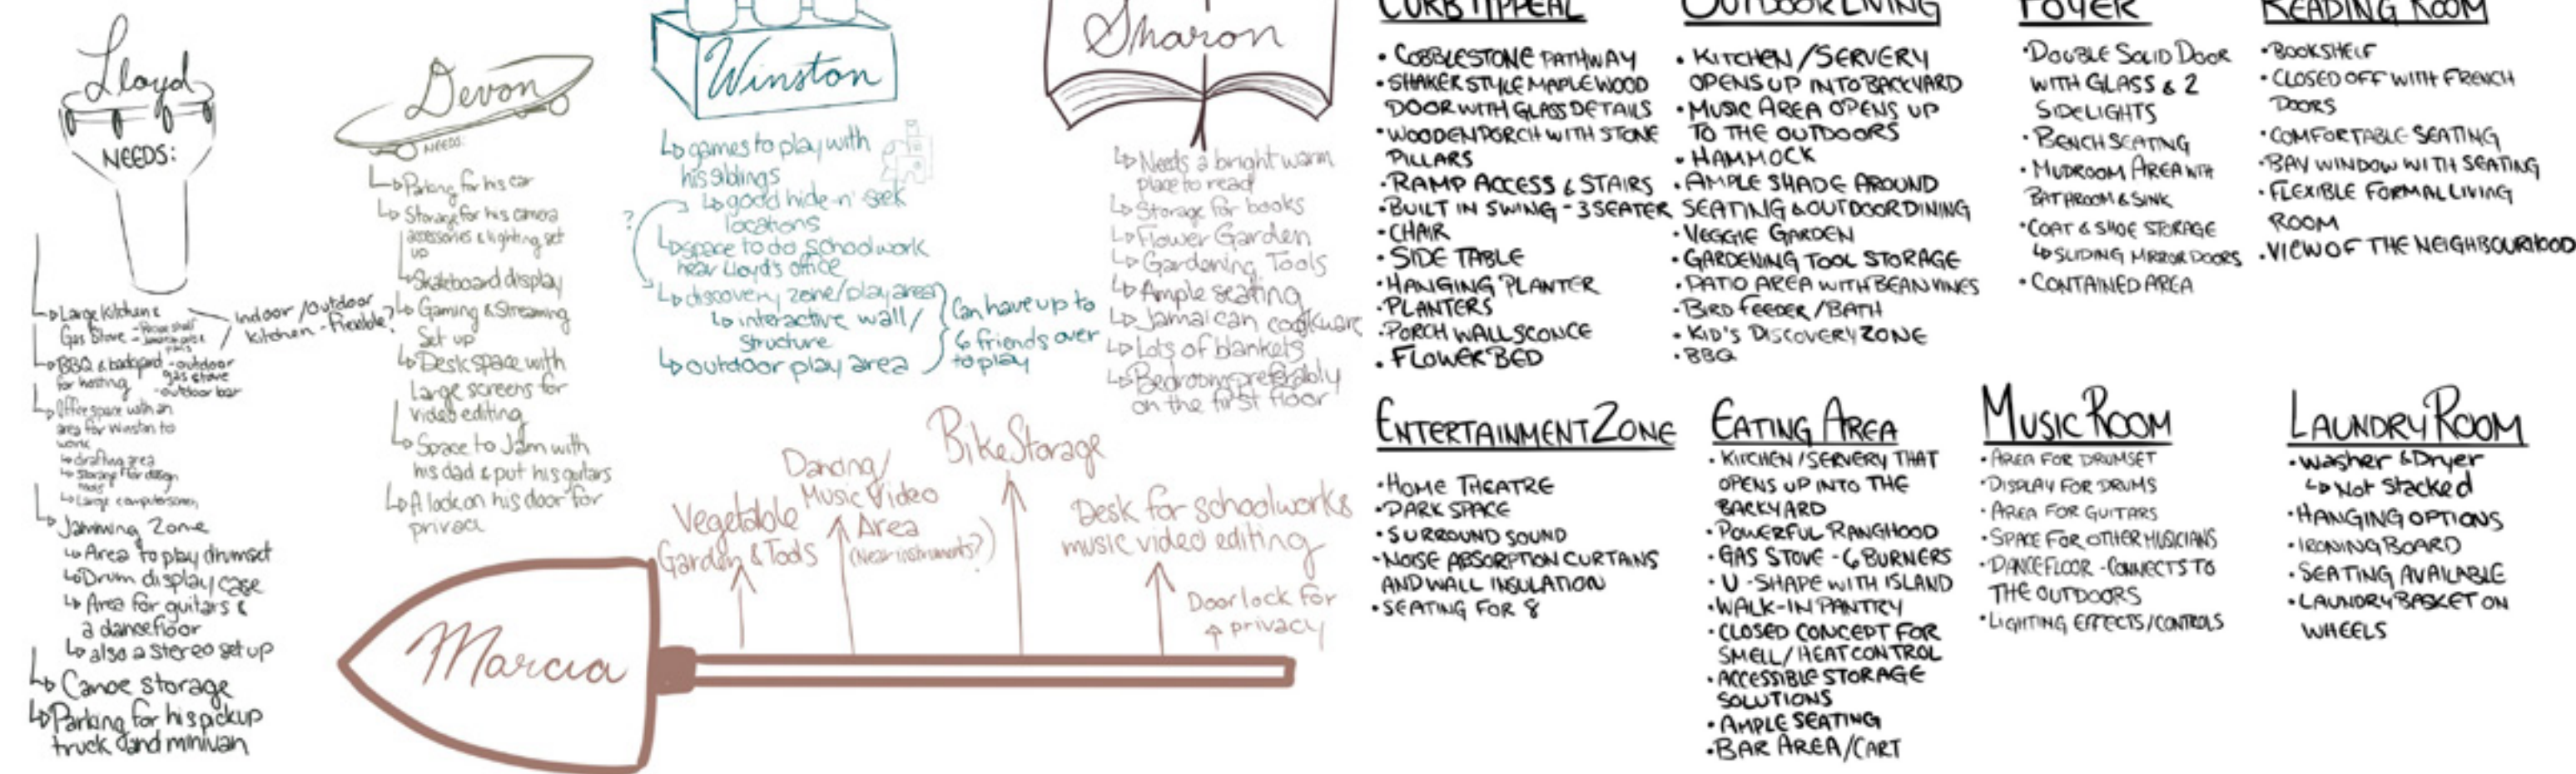 Lloyd
NEEDS:
Large Kitchen &
Gas Stove
Indoor/Outdoor
Kitchen - Flexible?
BBQ & backyard
for hosting
- outdoor
gas stove
- outdoor bar
Office space with an
area for Winston to
work
drafting area
Storage for design
tools
Large computer screen
Jamming Zone
Area to play drumset
Drum display case
Area for guitars &
a dancefloor
also a stereo set up
Canoe storage
Parking for his pickup
truck and minivan
Devon
NEEDS:
Parking for his car
Storage for his camera
accessories & lighting set
up
Skateboard display
Gaming & Streaming
Set up
Desk space with
Large screens for
video editing
Space to Jam with
his dad & put his guitars
A lock on his door for
privacy
Winston
games to play with
his siblings
good hide-n'-seek
locations
?
space to do schoolwork
near Lloyd's office
discovery zone/play area
interactive wall/
structure
outdoor play area
Can have up to
6 friends over
to play
Sharon
Needs a bright warm
place to read
Storage for books
Flower Garden
Gardening Tools
Ample seating
Jamaican cookware
Lots of blankets
Bedroom preferably
on the first floor
Marcia
Vegetable
Garden & Tools
Dancing/
Music Video
Area
(Near instruments?)
Bike Storage
Desk for schoolworks
music video editing
Door lock for
privacy
CURB APPEAL
• COBBLESTONE PATHWAY
• SHAKER STYLE MAPLE WOOD
DOOR WITH GLASS DETAILS
• WOODEN PORCH WITH STONE
PILLARS
• RAMP ACCESS & STAIRS
• BUILT IN SWING - 3 SEATER
• CHAIR
• SIDE TABLE
• HANGING PLANTER
• PLANTERS
• PORCH WALL SCONCE
• FLOWER BED
OUTDOOR LIVING
• KITCHEN/SERVERY
OPENS UP INTO BACKYARD
• MUSIC AREA OPENS UP
TO THE OUTDOORS
• HAMMOCK
• AMPLE SHADE AROUND
SEATING & OUTDOOR DINING
• VEGGIE GARDEN
• GARDENING TOOL STORAGE
• PATIO AREA WITH BEAN VINES
• BIRD FEEDER/BATH
• KID'S DISCOVERY ZONE
• BBQ
FOYER
• DOUBLE SOLID DOOR
WITH GLASS & 2
SIDELIGHTS
• BENCH SEATING
• MUDROOM AREA WITH
BATHROOM & SINK
• COAT & SHOE STORAGE
SLIDING MIRROR DOORS
• CONTAINED AREA
READING ROOM
• BOOKSHELF
• CLOSED OFF WITH FRENCH
DOORS
• COMFORTABLE SEATING
• BAY WINDOW WITH SEATING
• FLEXIBLE FORMAL LIVING
ROOM
• VIEW OF THE NEIGHBOURHOOD
ENTERTAINMENT ZONE
• HOME THEATRE
• DARK SPACE
• SURROUND SOUND
• NOISE ABSORPTION CURTAINS
AND WALL INSULATION
• SEATING FOR 8
EATING AREA
• KITCHEN/SERVERY THAT
OPENS UP INTO THE
BACKYARD
• POWERFUL RANGHOOD
• GAS STOVE - 6 BURNERS
• U-SHAPE WITH ISLAND
• WALK-IN PANTRY
• CLOSED CONCEPT FOR
SMELL/HEAT CONTROL
• ACCESSIBLE STORAGE
SOLUTIONS
• AMPLE SEATING
• BAR AREA/CART
MUSIC ROOM
• AREA FOR DRUMSET
• DISPLAY FOR DRUMS
• AREA FOR GUITARS
• SPACE FOR OTHER MUSICIANS
• DANCE FLOOR - CONNECTS TO
THE OUTDOORS
• LIGHTING EFFECTS/CONTROLS
LAUNDRY ROOM
• Washer & Dryer
Not Stacked
• HANGING OPTIONS
• IRONING BOARD
• SEATING AVAILABLE
• LAUNDRY BASKET ON
WHEELS